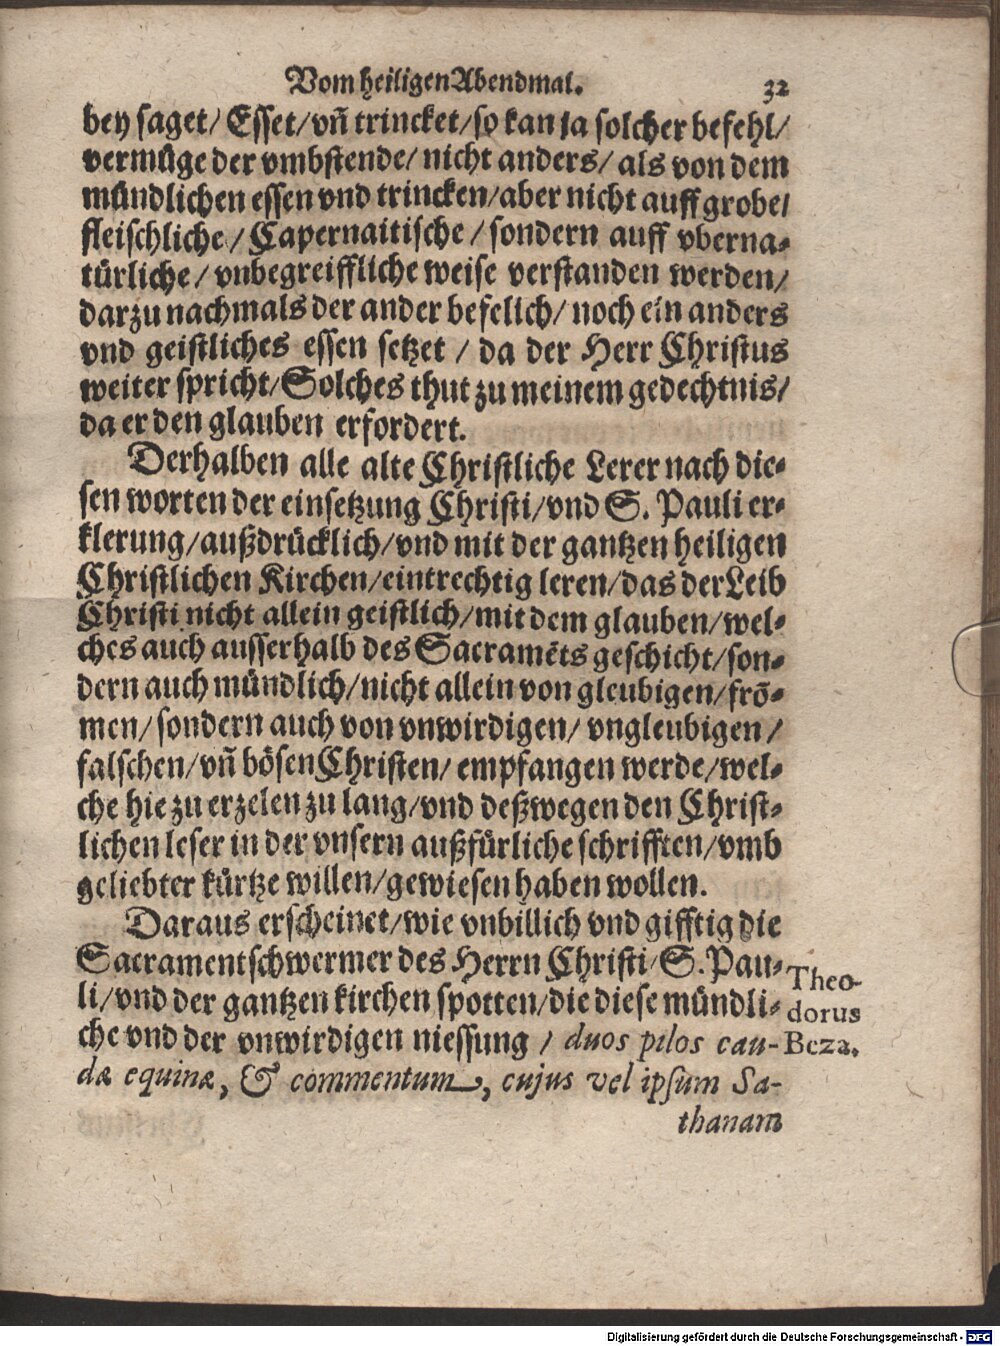 Vom heiligen Abendmal. 32
bey saget/ Esset/vn̄ trincket/so kan ja solcher befehl/
vermüge der vmbstende/ nicht anders/ als von dem
mündlichen essen vnd trincken/aber nicht auff grobe/
fleischliche/ Capernaitische/ sondern auff vberna-
türliche/ vnbegreiffliche weise verstanden werden/
darzu nachmals der ander befelich/ noch ein anders
vnd geistliches essen setzet / da der Herr Christus
weiter spricht/Solches thut zu meinem gedechtnis/
da er den glauben erfordert.
Derhalben alle alte Christliche Lerer nach die-
sen worten der einsetzung Christi/vnd S. Pauli er-
klerung/außdrücklich/vnd mit der gantzen heiligen
Christlichen Kirchen/eintrechtig leren/das der Leib
Christi nicht allein geistlich/mit dem glauben/wel-
ches auch ausserhalb des Sacramēts geschicht/son-
dern auch mündlich/nicht allein von gleubigen/frō-
men/sondern auch von vnwirdigen/ vngleubigen/
falschen/vn̄ bösen Christen/ empfangen werde/wel-
che hie zu erzelen zu lang/vnd deßwegen den Christ-
lichen leser in der vnsern außfürliche schrifften/vmb
geliebter kürtze willen/gewiesen haben wollen.
Daraus erscheinet/wie vnbillich vnd gifftig die
Sacramentschwermer des Herrn Christi/S.Pau-
li/vnd der gantzen kirchen spotten/die diese mündli-
che vnd der vnwirdigen niessung / duos pilos cau-
dæ equinæ, & commentum, cujus vel ipsum Sa-
thanam
Theo-
dorus
Beza.
Digitalisierung gefördert durch die Deutsche Forschungsgemeinschaft - DFG